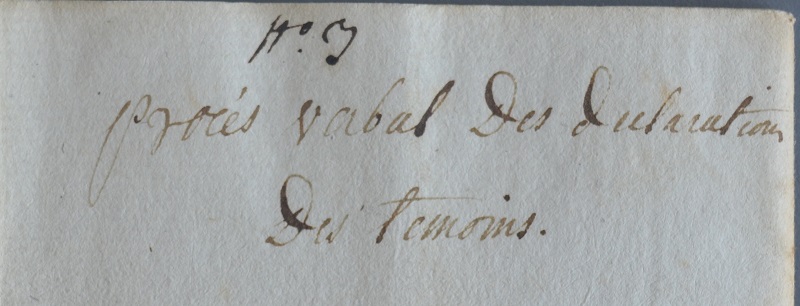 N.o 3
procés verbal Des declarations
Des temoins.